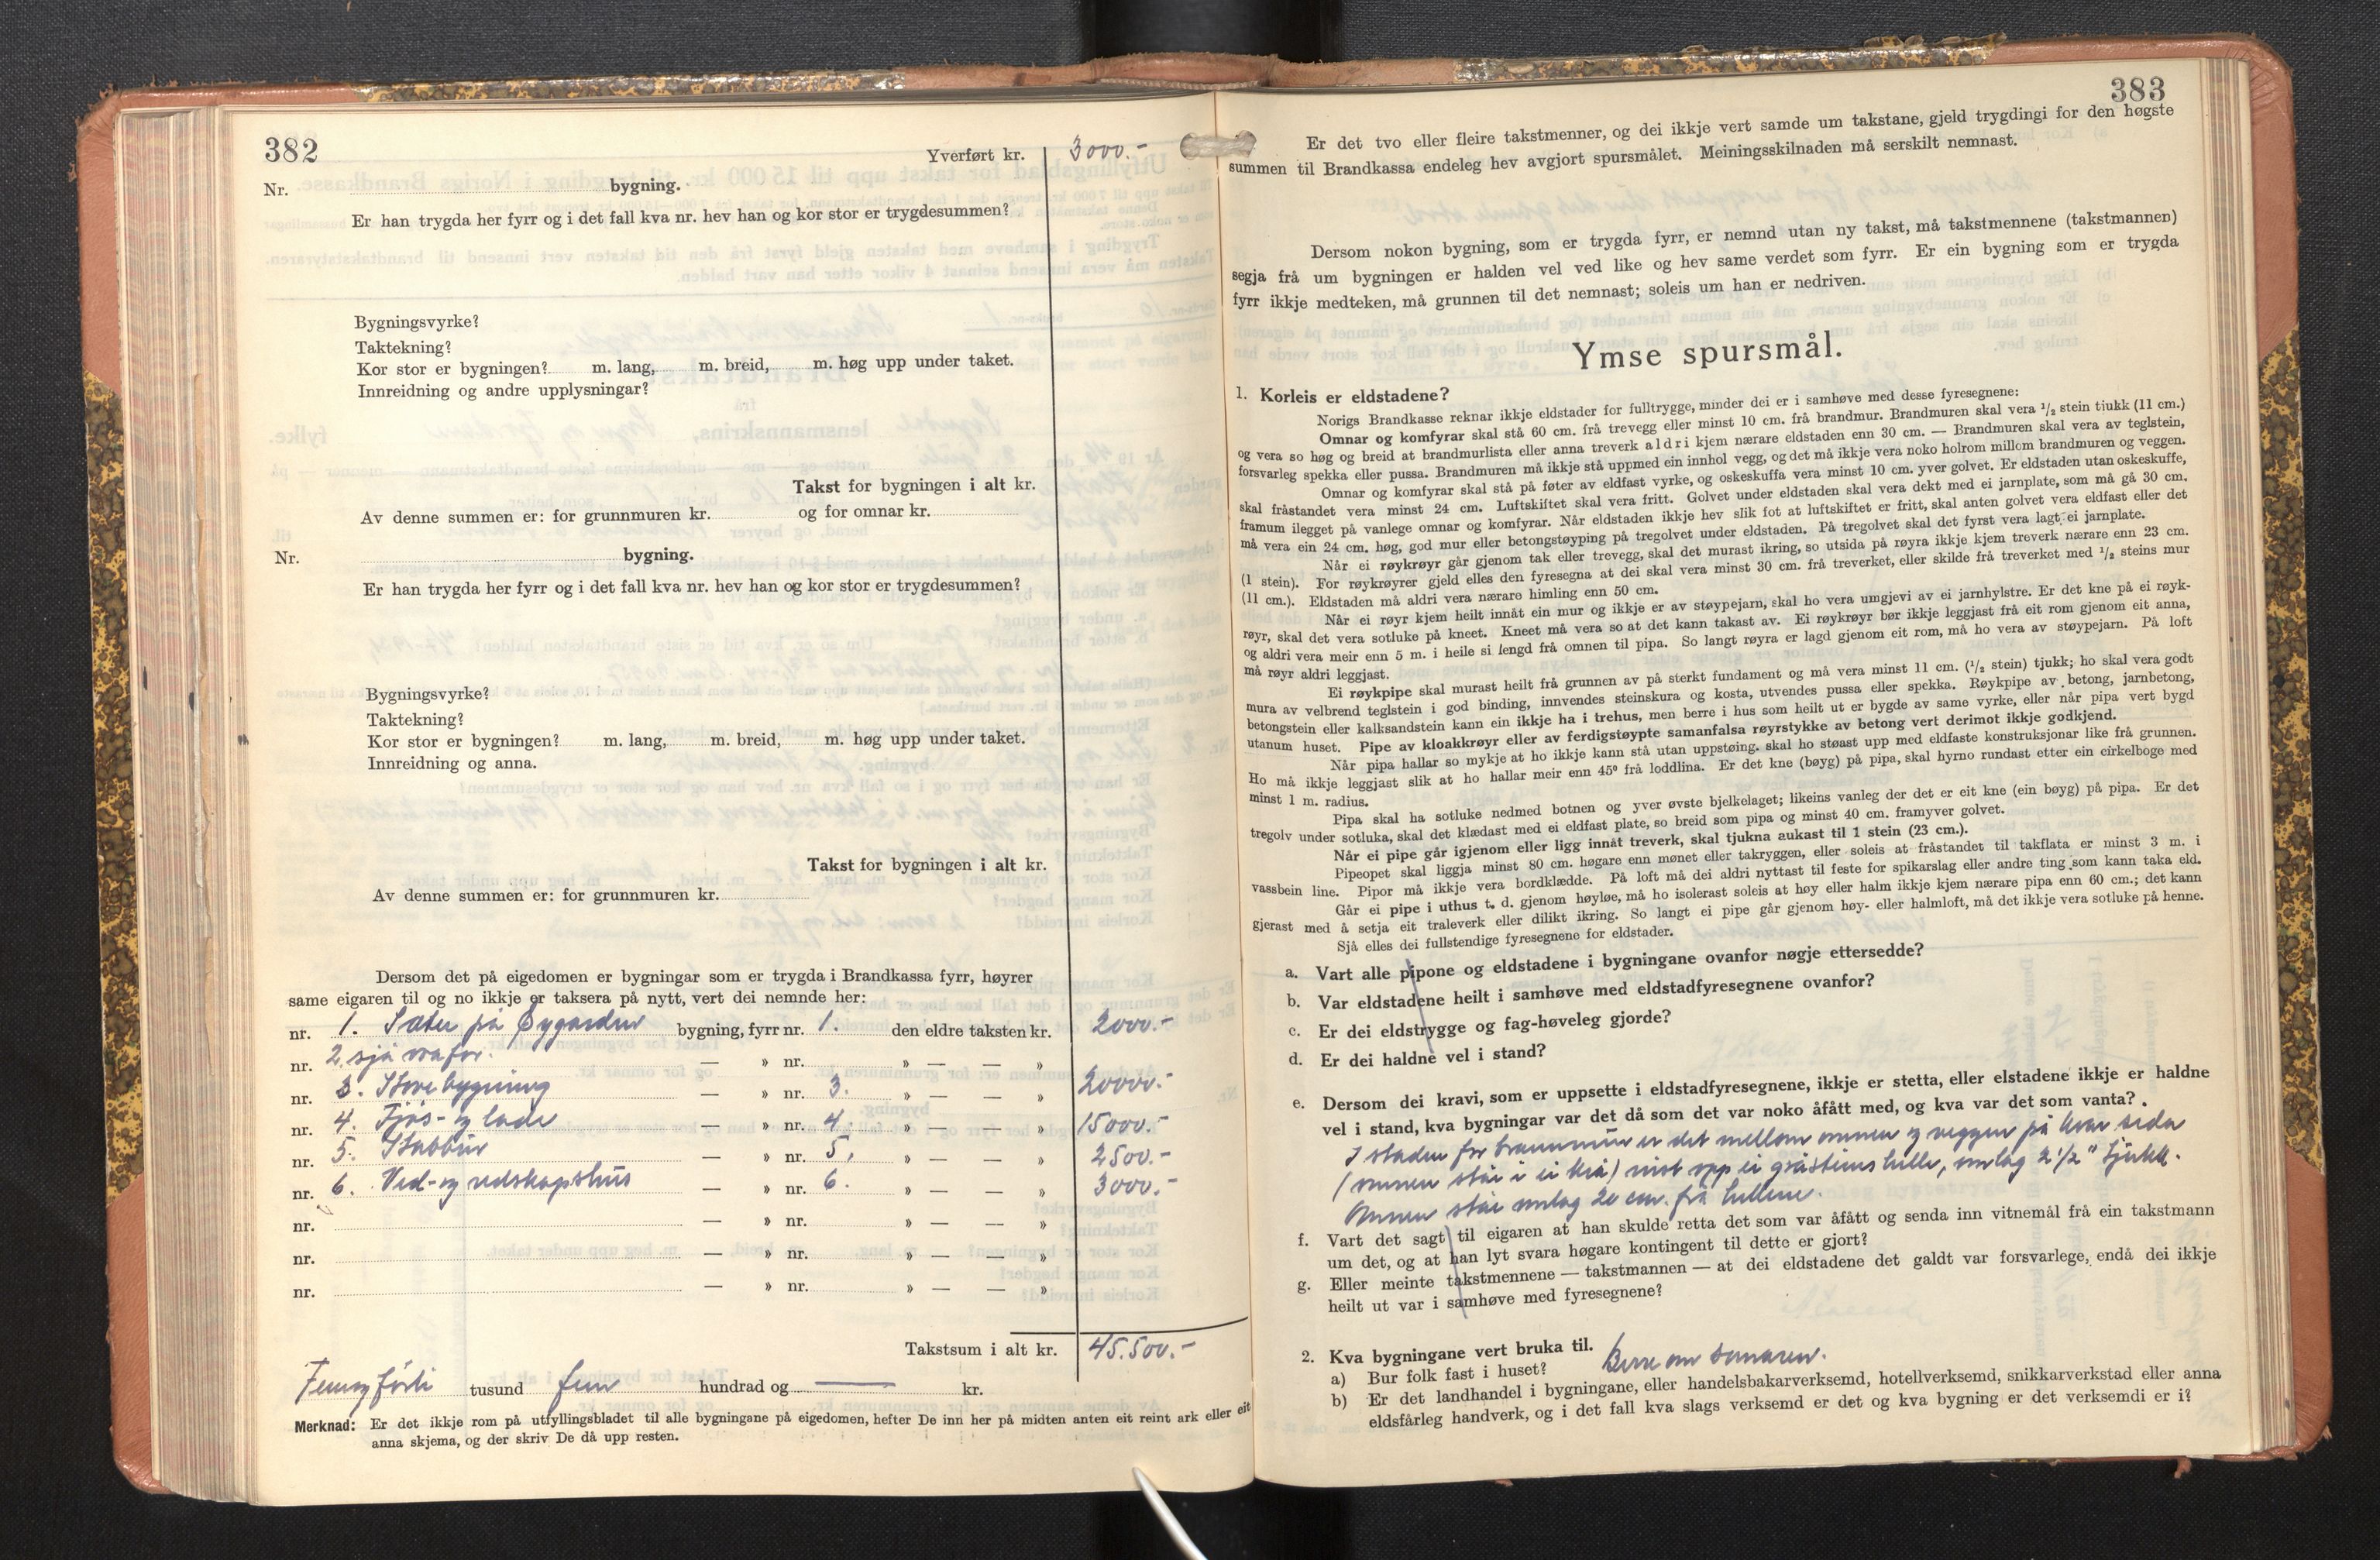 382
Yverført kr. 3000.-
Nr. bygning.
Er han trygda her fyrr og i det fall kva nr. hev han og kor stor er trygdesummen?
Bygningsvyrke?
Taktekning?
Kor stor er bygningen? m. lang, m. breid, m. høg upp under taket.
Innreidning og andre upplysningar?
Takst for bygningen i alt kr.
Av denne summen er: for grunnmuren kr. og for omnar kr.
Nr. bygning.
Er han trygda her fyrr og i det fall kva nr. hev han og kor stor er trygdesummen?
Bygningsvyrke?
Taktekning?
Kor stor er bygningen? m. lang, m. breid, m. høg upp under taket.
Innreidning og anna.
Takst for bygningen i alt kr.
Av denne summen er: for grunnmuren kr.
Dersom det på eigedomen er bygningar som er trygda i Brandkassa fyrr, høyrer
same eigaren til og no ikkje er taksera på nytt, vert dei nemnde her:
nr. 1. Sæter på Øygarden bygning, fyrr nr. 1. den eldre taksten kr. 2000.-
nr. 2, sjå ovafor. — » nr. » — — »
nr. 3. Storebygning — » nr. 3. » — — » 20000.-
nr. 4. Fjøs- og lade — » nr. 4. » — — » 15000.-
nr. 5. Stabbur — » nr. 5. » — — » 2500.-
nr. 6. Ved- og redskapshus — » nr. 6. » — — » 3000.-
nr. — » nr. » — — »
nr. — » nr. » — — »
nr. — » nr. » — — »
Takstsum i alt kr. 45.500.-
Femogførti tusund fem hundrad og — kr.
Merknad: Er det ikkje rom på utfyllingsbladet til alle bygningane på eigedomen, hefter De inn her på midten anten eit reint ark eller eit
anna skjema, og der skriv De då upp resten.
383
Er det tvo eller fleire takstmenner, og dei ikkje vert samde um takstane, gjeld trygdingi for den høgste
summen til Brandkassa endeleg hev avgjort spursmålet. Meiningsskilnaden må serskilt nemnast.
Dersom nokon bygning, som er trygda fyrr, er nemnd utan ny takst, må takstmennene (takstmannen)
segja frå um bygningen er halden vel ved like og hev same verdet som fyrr. Er ein bygning som er trygda
fyrr ikkje medteken, må grunnen til det nemnast; soleis um han er nedriven.
Ymse spursmål.
1. Korleis er eldstadene?
Norigs Brandkasse reknar ikkje eldstader for fulltrygge, minder dei er i samhøve med desse fyresegnene:
Omnar og komfyrar skal stå 60 cm. frå trevegg eller minst 10 cm. frå brandmur. Brandmuren skal vera 1/2 stein tjukk (11 cm.)
og vera so høg og breid at brandmurlista eller anna treverk aldri kjem nærare eldstaden enn 30 cm. — Brandmuren skal vera av teglstein,
forsvarleg spekka eller pussa. Brandmuren må ikkje stå uppmed ein innhol vegg, og det må ikkje vera noko holrom millom brandmuren og veggen.
Omnar og komfyrar skal stå på føter av eldfast vyrke, og oskeskuffa vera minst 10 cm. yver golvet. Er eldstaden utan oskeskuffe,
skal fråstandet vera minst 24 cm. Luftskiftet skal vera fritt. Golvet under eldstaden skal vera dekt med ei jarnplate, som må gå 30 cm.
framum ilegget på vanlege omnar og komfyrar. Når eldstaden ikkje hev slik fot at luftskiftet er fritt, skal anten golvet vera eldfast eller det
må vera ein 24 cm. høg, god mur eller betongstøyping på tregolvet under eldstaden. På tregolvet skal det fyrst vera lagt ei jarnplate.
Når ei røykrøyr går gjenom tak eller trevegg, skal det murast ikring, so utsida på røyra ikkje kjem treverk nærare enn 23 cm.
(1 stein). For røykrøyrer gjeld elles den fyresegna at dei skal vera minst 30 cm. frå treverket, eller skilde frå treverket med 1/2 steins mur
(11 cm.). Eldstaden må aldri vera nærare himling enn 50 cm.
Når ei røyr kjem heilt innåt ein mur og ikkje er av støypejarn, skal ho vera umgjevi av ei jarnhylstre. Er det kne på ei røyk-
røyr, skal det vera sotluke på kneet. Kneet må vera so at det kann takast av. Ei røykrøyr bør ikkje leggjast frå eit rom gjenom eit anna,
og aldri vera meir enn 5 m. i heile si lengd frå omnen til pipa. So langt røyra er lagd gjenom eit rom, må ho vera av støypejarn. På loft
må røyr aldri leggjast.
Ei røykpipe skal murast heilt frå grunnen av på sterkt fundament og må vera minst 11 cm. (1/2 stein) tjukk; ho skal vera godt
mura av velbrend teglstein i god binding, innvendes steinskura og kosta, utvendes pussa eller spekka. Røykpipe av betong, jarnbetong,
betongstein eller kalksandstein kann ein ikkje ha i trehus, men berre i hus som heilt ut er bygde av same vyrke, eller når pipa vert bygd
utanum huset. Pipe av kloakkrøyr eller av ferdigstøypte samanfalsa røyrstykke av betong vert derimot ikkje godkjend.
Når pipa hallar so mykje at ho ikkje kann stå utan uppstøing, skal ho støast upp med eldfaste konstruksjonar like frå grunnen.
Ho må ikkje leggjast slik at ho hallar meir enn 45° frå loddlina. Er det kne (bøyg) på pipa, skal hyrno rundast etter ein cirkelboge med
minst 1 m. radius.
Pipa skal ha sotluke nedmed botnen og yver øvste bjelkelaget; likeins vanleg der det er eit kne (ein bøyg) på pipa. Er det
tregolv under sotluka, skal det klædast med ei eldfast plate, so breid som pipa og minst 40 cm. framyver golvet.
Når ei pipe går igjenom eller ligg innåt treverk, skal tjukna aukast til 1 stein (23 cm.).
Pipeopet skal liggja minst 80 cm. høgare enn mønet eller takryggen, eller soleis at fråstandet til takflata er minst 3 m. i
vassbein line. Pipor må ikkje vera bordklædde. På loft må dei aldri nyttast til feste for spikarslag eller andre ting som kann taka eld.
Går ei pipe i uthus t. d. gjenom høyløe, må ho isolerast soleis at høy eller halm ikkje kjem nærare pipa enn 60 cm.; det kann
gjerast med å setja eit traleverk eller dilikt ikring. So langt ei pipe går gjenom høy- eller halmloft, må det ikkje vera sotluke på henne.
Sjå elles dei fullstendige fyresegnene for eldstader.
a. Vart alle pipone og eldstadene i bygningane ovanfor nøgje ettersedde?
b. Var eldstadene heilt i samhøve med eldstadfyresegnene ovanfor?
c. Er dei eldstrygge og fag-høveleg gjorde?
d. Er dei haldne vel i stand?
e. Dersom dei kravi, som er uppsette i eldstadfyresegnene, ikkje er stetta, eller elstadene ikkje er haldne
vel i stand, kva bygningar var det då som det var noko åfått med, og kva var det som vanta?
I staden for brannmur er det mellom omnen og veggen på kvar sida
(omnen står i ei krå) reist opp ei gråsteinshelle, omlag 2 1/2" tjukk.
Omnen står omlag 20 cm. frå hellene.
f. Vart det sagt til eigaren at han skulde retta det som var åfått og senda inn vitnemål frå ein takstmann
um det, og at han lyt svara høgare kontingent til dette er gjort?
g. Eller meinte takstmennene — takstmannen — at dei eldstadene det galdt var forsvarlege, endå dei ikkje
heilt ut var i samhøve med fyresegnene?
2. Kva bygningane vert bruka til.
a) Bur folk fast i huset? Berre om sumaren.
b) Er det landhandel i bygningane, eller handelsbakarverksemd, hotellverksemd, snikkarverkstad eller anna
eldsfårleg handverk, og i det fall kva slags verksemd er det og kva bygning er det verksemdi er i?